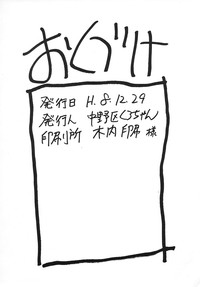 おくづけ
発行日 H.8.12.29
発行人 中野区くろちゃん
印刷所 木内印刷 様